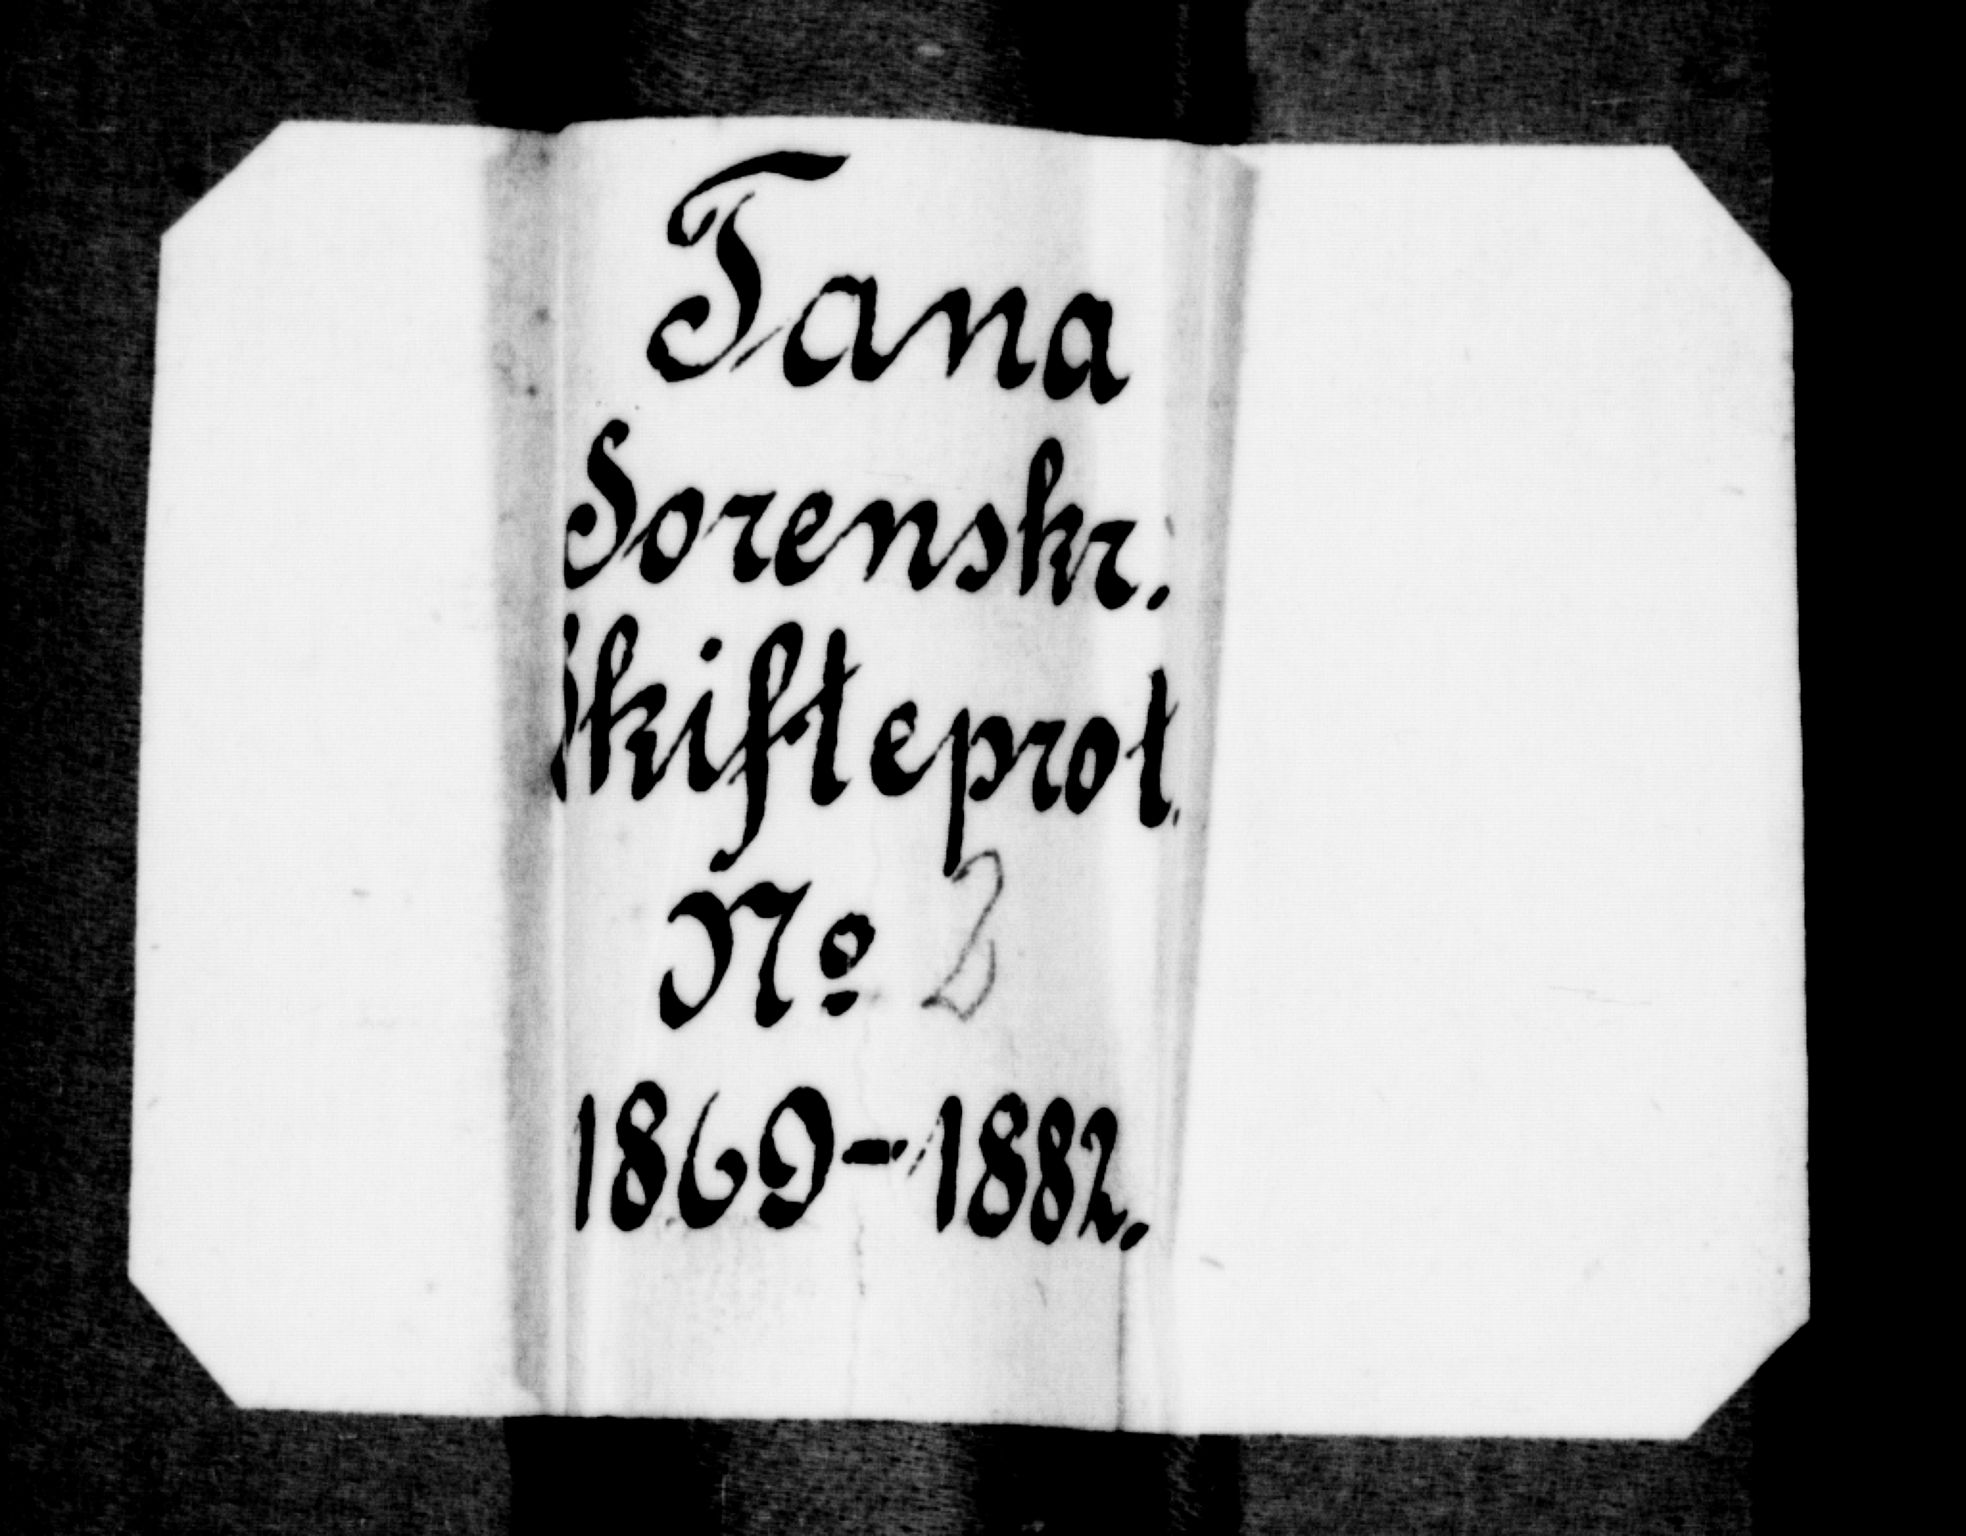 Tana
Sorenskr.
Skifteprot.
No 2
1869-1882.